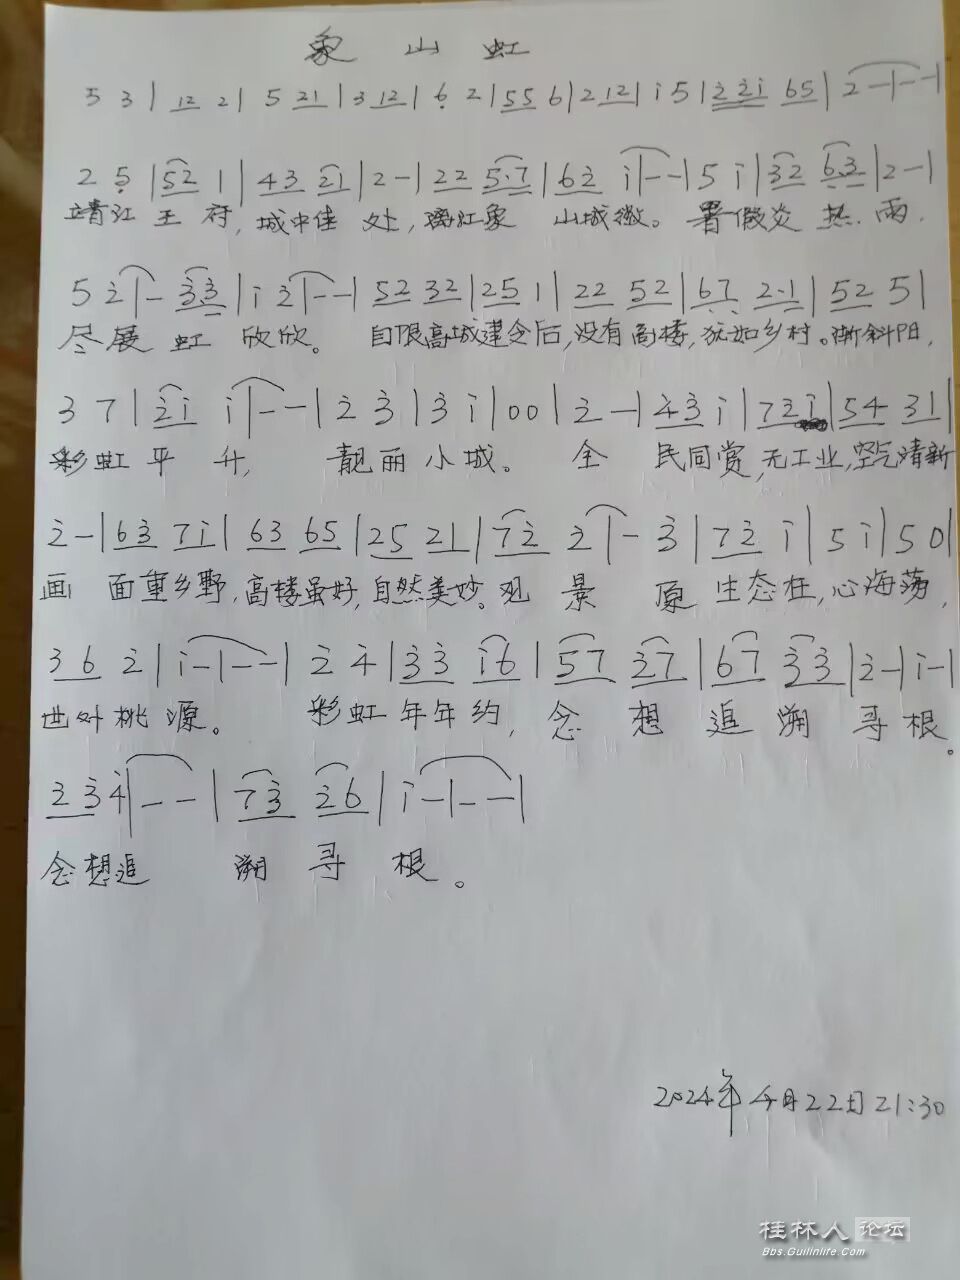 象山虹
5 3 | 12 2 | 5 21 | 3 12 | 6 2 | 55 6 | 2 12 | i 5 | 2 2i 65 | 2 - | - - |
2 5 | 52 1 | 43 21 | 2 - | 22 5·7 | 62 i | - - | 5 i | 32 6·3 | 2 - |
靖江王府,城中佳处,漓江象山城徽。署假炎热.雨,
5 2 | - 33 | i 2 | - - | 52 32 | 25 1 | 22 52 | 67 2·1 | 52 5 |
尽展虹欣欣。自限高城建令后,没有高楼,犹如乡村。渐斜阳,
3 7 | 2i i | - - | 2 3 | 3 i | 00 | 2 - | 43 i | 72i | 54 31 |
彩虹平升,靓丽小城。全民同赏,无工业,空气清新
2 - | 63 7i | 63 65 | 25 21 | 72 2 | - 3 | 72 i | 5 i | 5 0 |
画面重乡野,高楼虽好,自然美妙。观景原生态在,心海荡,
3 6 2 | i - | - - | 2 4 | 33 i6 | 57 27 | 67 33 | 2 - | i - |
世外桃源。彩虹年年约,念想追溯寻根。
2 34 | - - | 73 26 | i - | - - |
念想追溯寻根。
2024年4月22日21:30
桂林人论坛
Bbs.Guilinlife.Com